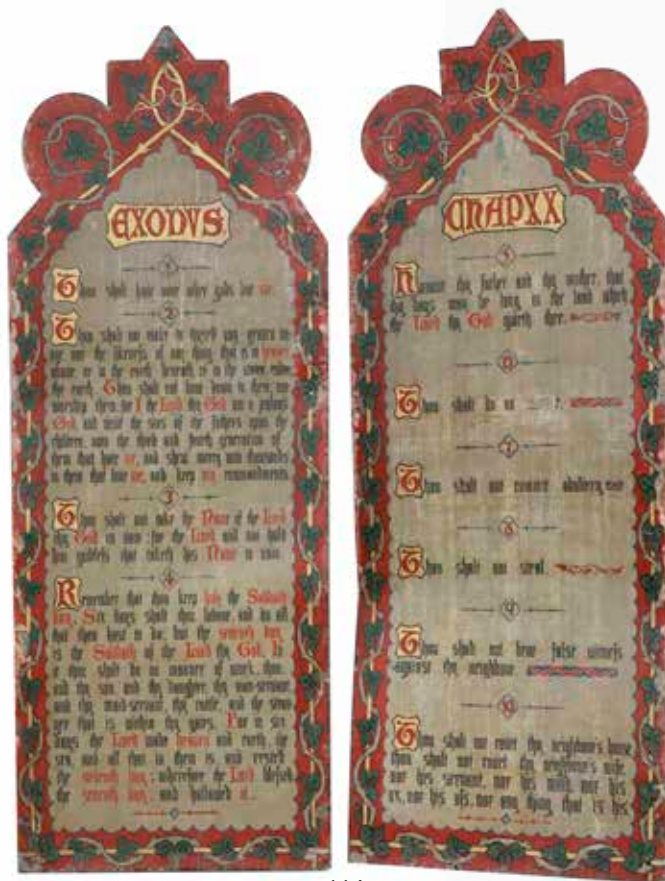 EXODVS
1
Thou shalt have none other gods but me.
2
Thou shalt not make to thyself any graven im-
age, nor the likeness of any thing that is in heaven
above, or in the earth beneath, or in the water under
the earth. Thou shalt not bow down to them, nor
worship them for I the Lord thy God am a jealous
God and visit the sins of the fathers upon the
children, unto the third and fourth generation of
them that hate me, and shew mercy unto thousands
in them that love me, and keep my commandments
3
Thou shalt not take the Name of the Lord
thy God in vain: for the Lord will not hold
him guiltless that taketh his Name in vain.
4
Remember that thou keep holy the Sabbath
day. Six days shalt thou labour, and do all
that thou hast to do; but the seventh day
is the Sabbath of the Lord thy God. In
it thou shalt do no manner of work, thou
and thy son, and thy daughter, thy man-servant,
and thy maid-servant, thy cattle, and the stran-
ger that is within thy gates. For in six
days the Lord made heaven and earth, the
sea, and all that in them is and rested
the seventh day; wherefore the Lord blessed
the seventh day, and hallowed it.
CHAPXX
5
Honour thy father and thy mother, that
thy days may be long in the land which
the Lord thy God giveth thee.
Thou shalt do no
7
Thou shalt not commit adultery
8
Thou shalt not steal.
9
Thou shalt not bear false witness
against thy neighbour.
Thou shalt not covet thy neighbour's house
thou shalt not covet thy neighbour's wife,
nor his servant, nor his maid, nor his
ox, nor his ass, nor any thing that is his